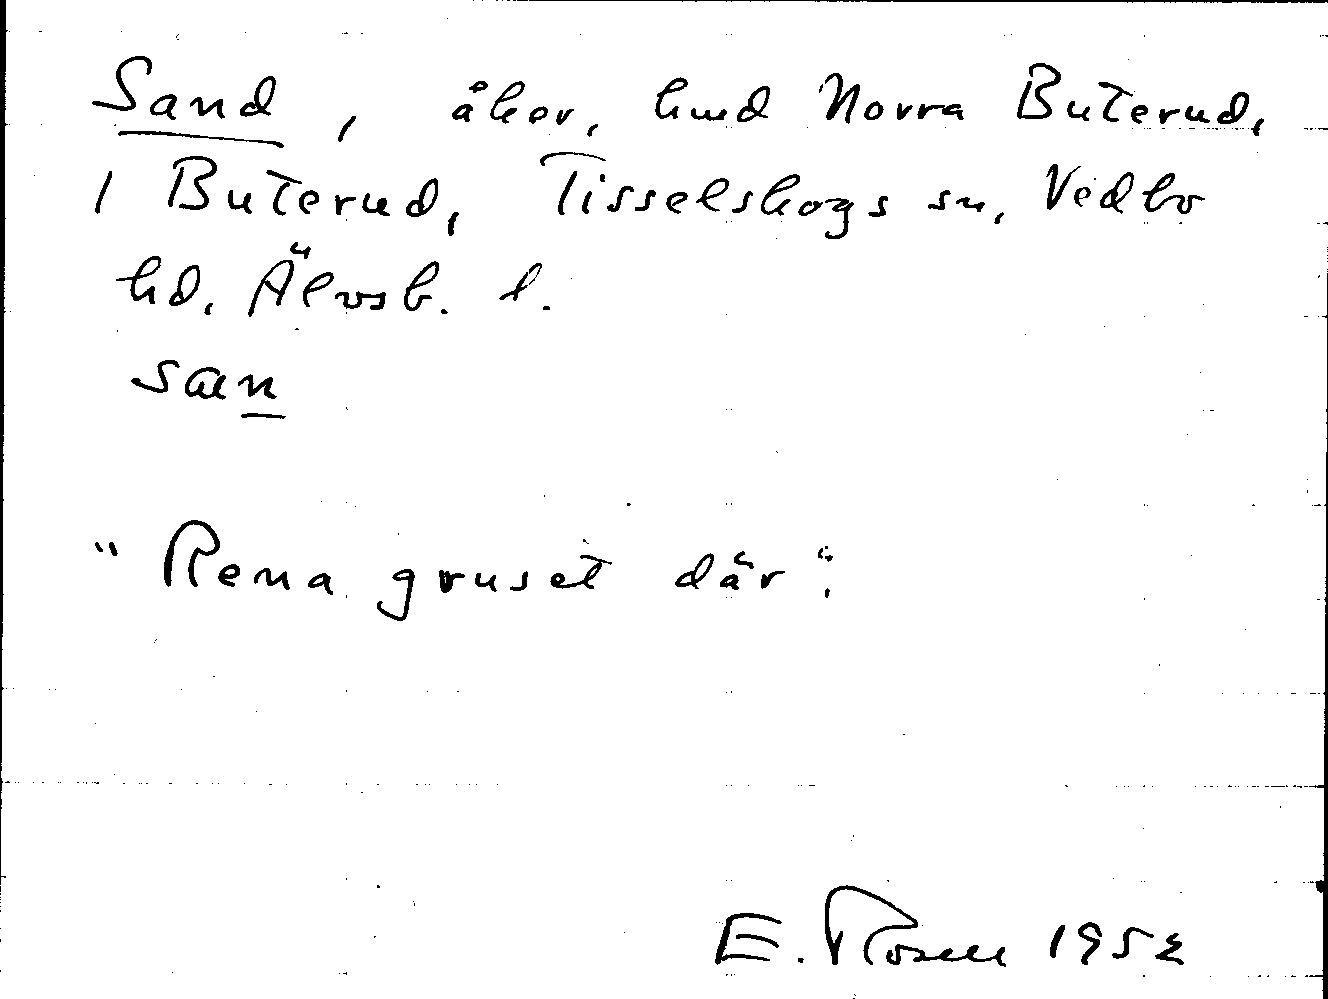 Sand, åker, hmd Norra Buterud,
1 Buterud, Tisselskogs sn, Vedbo
hd, Älvsb. l.
san
"Rena gruset där".
E. Rosell 1952